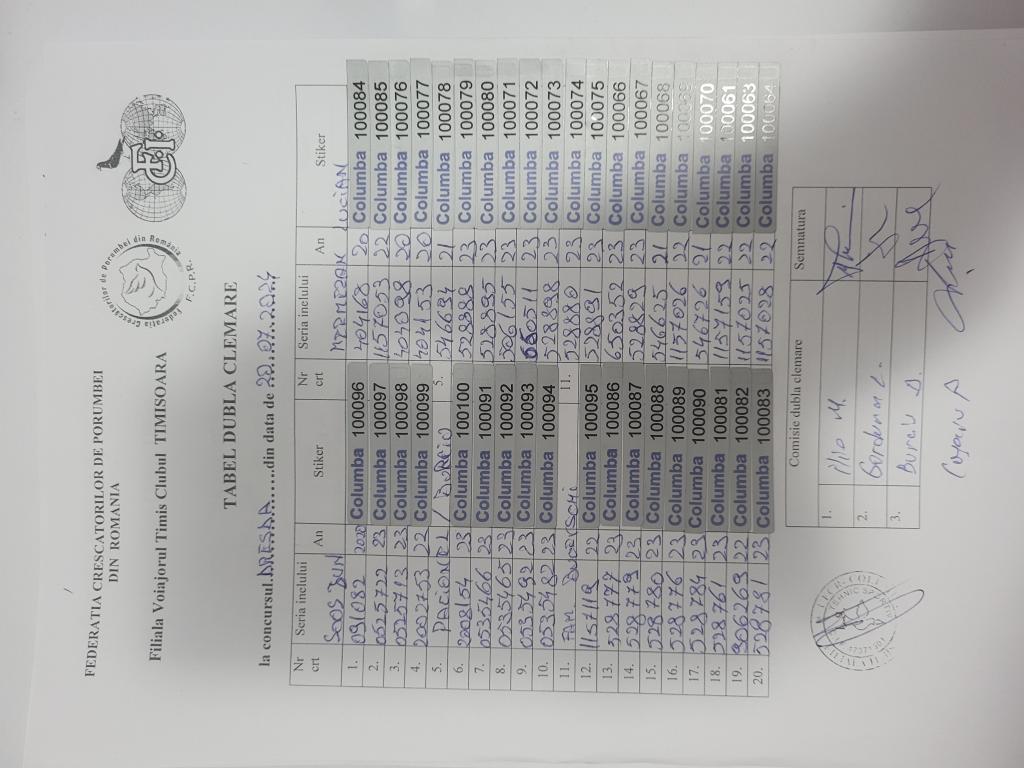 FEDERATIA CRESCATORILOR DE PORUMBEI
DIN ROMANIA
Filiala Voiajorul Timis Clubul TIMISOARA
Federatia Crescătorilor de Porumbei din România
F.C.P.R.
TABEL DUBLA CLEMARE
la concursul DRESDA din data de 20.07.2024
Nr crt Seria inelului An Stiker Nr crt Seria inelului An Stiker
SOOS DAN LUCIAN
1. 091082 2020 Columba 100096 404168 20 Columba 100084
2. 0525722 23 Columba 100097 1157053 22 Columba 100085
3. 0525713 23 Columba 100098 404098 20 Columba 100076
4. 2002753 22 Columba 100099 404153 20 Columba 100077
5. 5. 546694 21 Columba 100078
6. 2008154 23 Columba 100100 528885 23 Columba 100079
7. 0535466 23 Columba 100091 528895 23 Columba 100080
8. 0535465 23 Columba 100092 506155 23 Columba 100071
9. 0535492 23 Columba 100093 23 Columba 100072
10. 0535482 23 Columba 100094 528898 23 Columba 100073
11. FAM. 11. 528880 23 Columba 100074
12. 1157119 22 Columba 100095 528091 23 Columba 100075
13. 528777 23 Columba 100086 650352 23 Columba 100066
14. 528779 23 Columba 100087 528829 23 Columba 100067
15. 528780 23 Columba 100088 546625 21 Columba 100068
16. 528776 23 Columba 100089 1157026 22 Columba
17. 528784 23 Columba 100090 546726 21 Columba 100070
18. 528761 23 Columba 100081 1157159 22 Columba 100061
19. 906269 22 Columba 100082 1157025 22 Columba 100063
20. 528781 23 Columba 100083 1157028 22 Columba 100064
Comisie dubla clemare Semnatura
1. M.
2.
3. D.